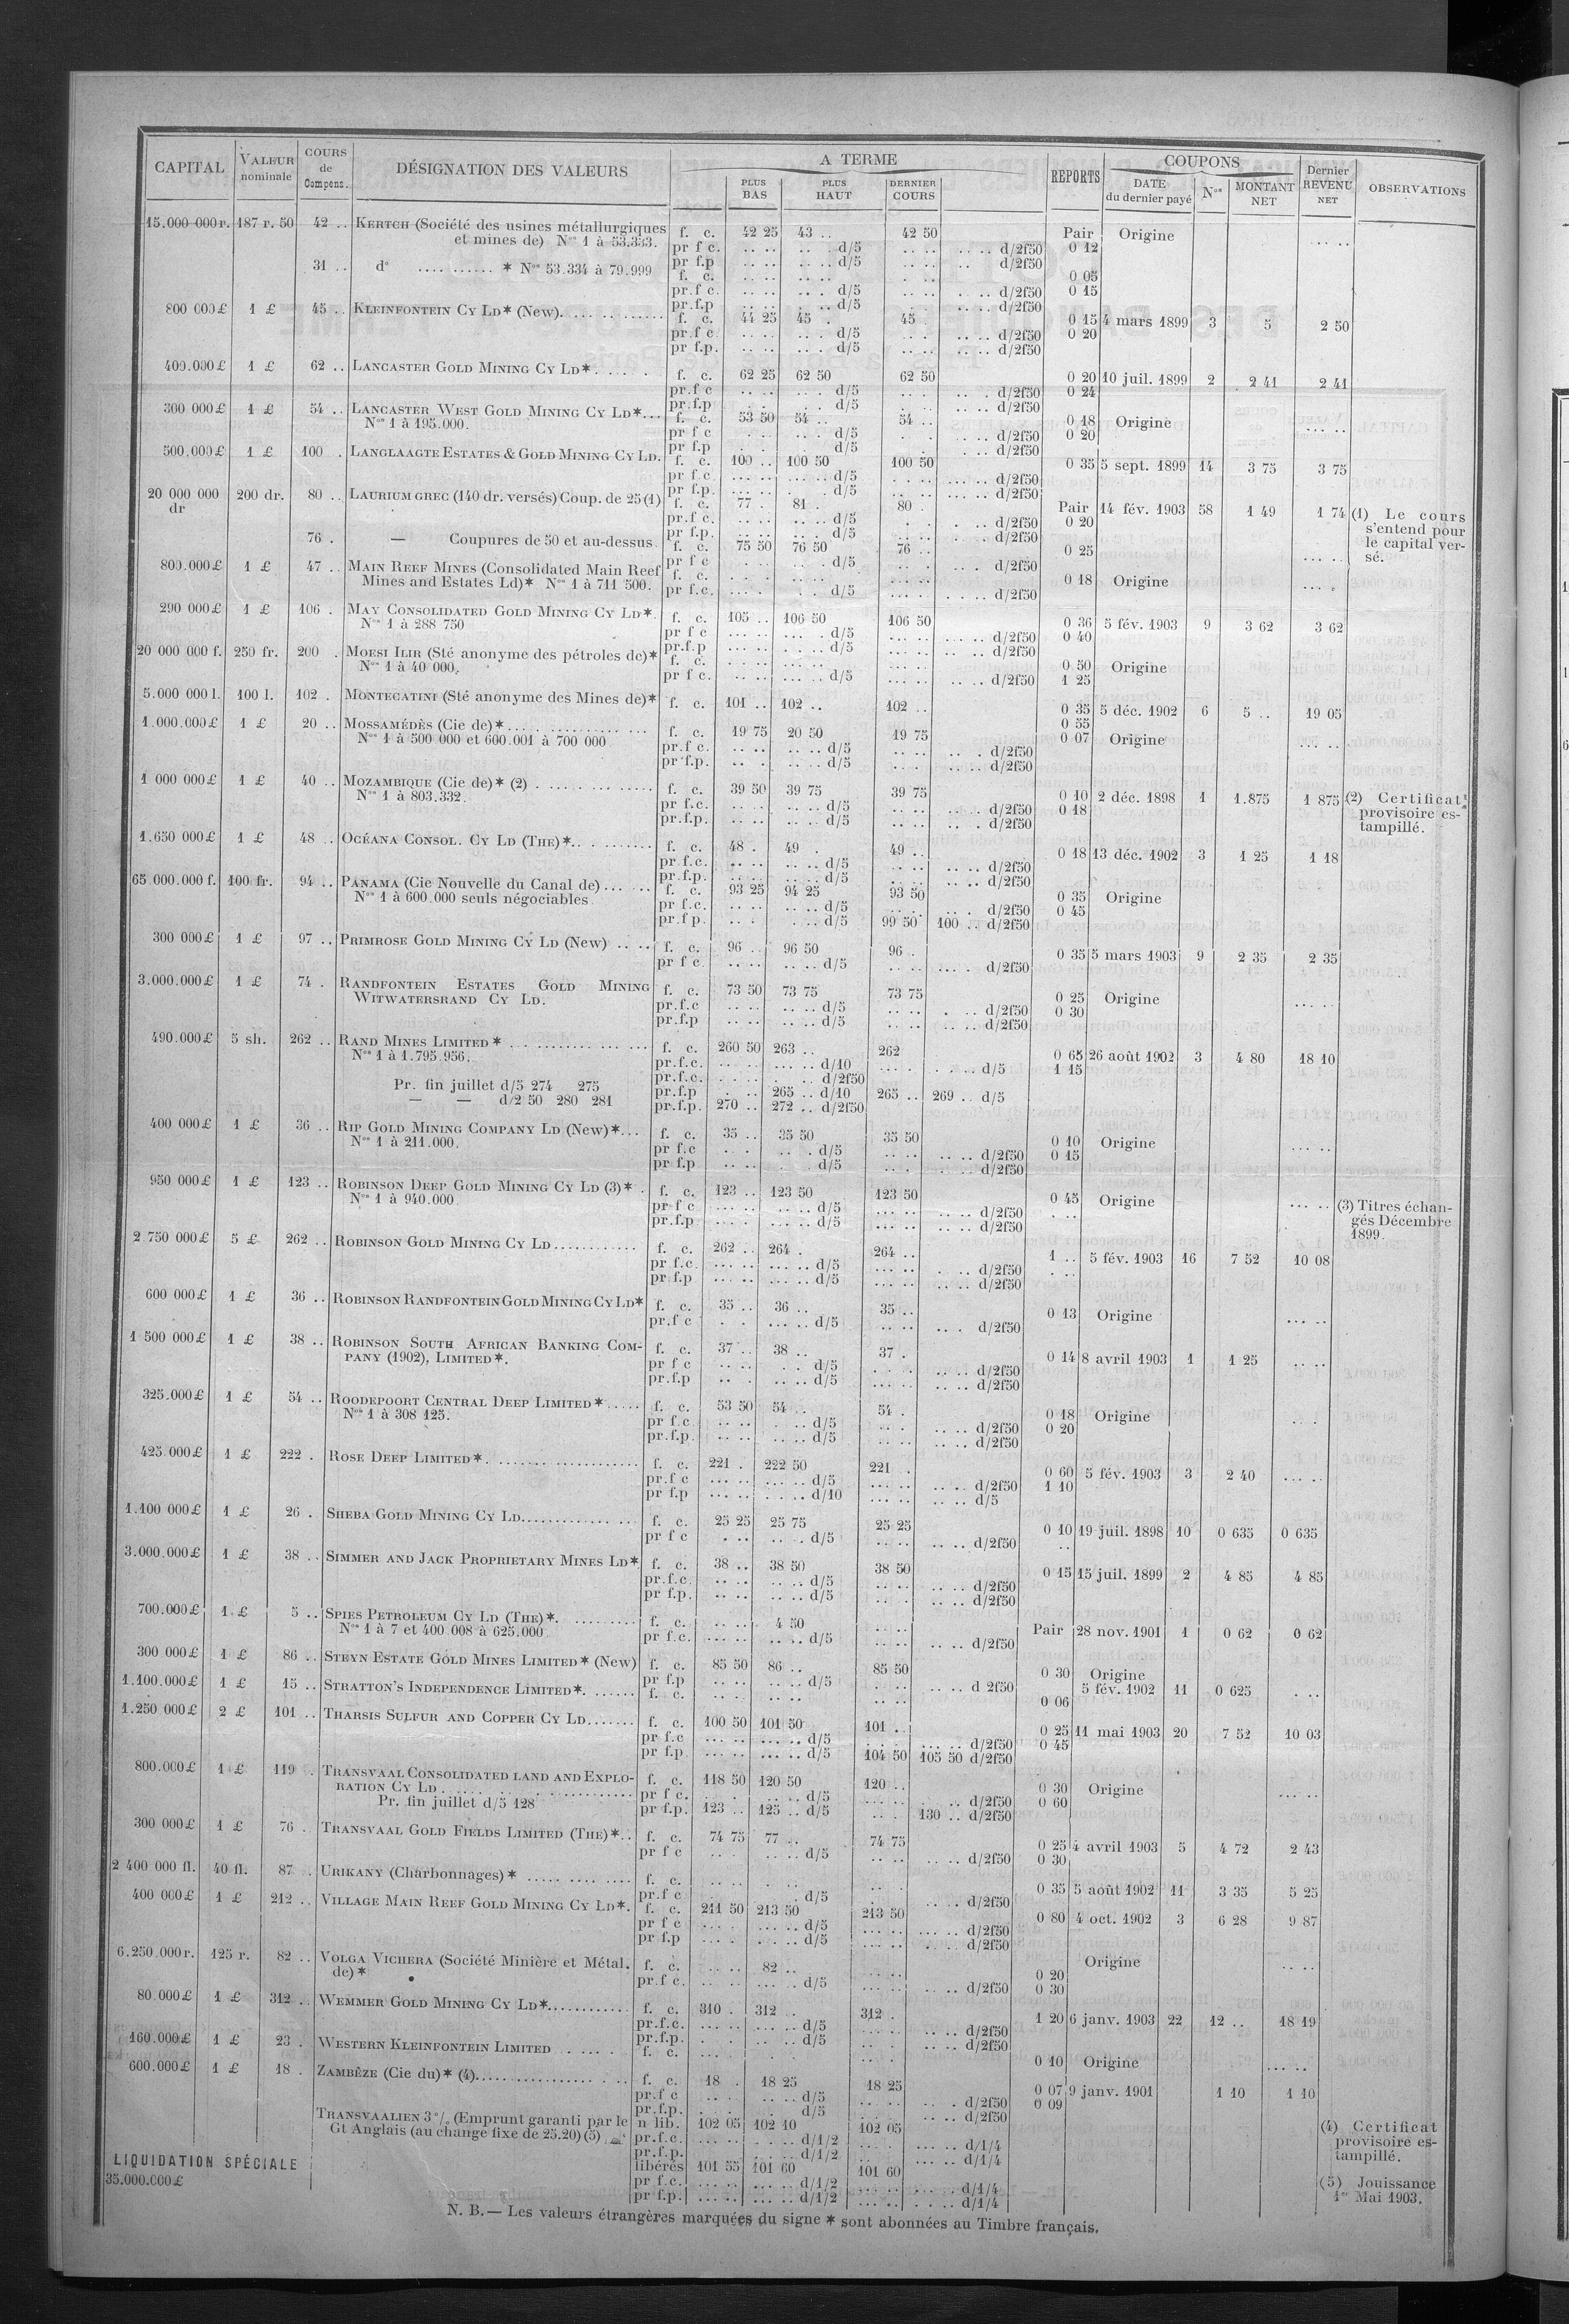 CAPITAL | VALEUR nominale | COURS de Compens. | DÉSIGNATION DES VALEURS | A TERME | PLUS BAS | PLUS HAUT | DERNIER COURS | REPORTS | COUPONS | DATE du dernier payé | Nos | MONTANT NET | Dernier REVENU NET | OBSERVATIONS
15.000 000 r. 187 r. 50 42 .. KERTCH (Société des usines métallurgiques f. c. 42 25 43 .. 42 50 Pair Origine .. ..
et mines de) Nos 1 à 53.333. pr f c. .. .. .. . d/5 .. .. .. .. d/2f50 0 12
pr f.p .. .. .. . d/5 .. .. .. d/2f50
31 .. do .... ...... * Nos 53.334 à 79.999 f. c. 0 05
pr.f c. .. .. .. . d/5 .. .. . .. d/2f50 0 15
pr.f.p .. .. .. .. d/5 .. .. d/2f50
800 000 £ 1 £ 45 .. KLEINFONTEIN CY LD* (New). f. c. 44 25 45 . 45 . 0 15 4 mars 1899 3 5 2 50
pr.f c. .. .. .. . d/5 .. . .. .. d/2f50 0 20
pr f.p. .. .. .. . d/5 .. .. .. .. d/2f50
400.000 £ 1 £ 62 .. LANCASTER GOLD MINING CY LD* f. c. 62 25 62 50 62 50 0 20 10 juil. 1899 2 2 41 2 41
pr.f c .. .. .. . d/5 .. . . . d/2f50 0 24
pr.f.p . . d/5 .. .. d/2f50
300 000 £ 1 £ 54 .. LANCASTER WEST GOLD MINING CY LD* f. c. 53 50 54 .. 54 .. 0 18 Origine .. ..
Nos 1 à 195.000. pr f c .. .. d/5 .. .. d/2f50 0 20
pr f.p d/5 . .. d/2f50
500.000 £ 1 £ 100 . LANGLAAGTE ESTATES & GOLD MINING CY LD. f. c. 100 .. 100 50 100 50 0 35 5 sept. 1899 14 3 75 3 75
pr f c. ... .. ... .. d/5 ... .. d/2f50
pr f.p. ... .. . d/5 ... .. d/2f50
20 000 000 dr 200 dr. 80 .. LAURIUM GREC (140 dr. versés) Coup. de 25 (1) f. c. 77 . 81 . 80 . Pair 14 fév. 1903 58 1 49 1 74 (1) Le cours
pr.f c. .. .. .. .. d/5 . .. d/2f50 0 20 s'entend pour
pr f.p. .. .. .. . d/5 .. . d/2f50 le capital ver-
76 . — Coupures de 50 et au-dessus. f. c. 75 50 76 50 76 .. 0 25 .. .. sé.
pr f c . .. .. . d/5 .. . . .. d/2f50
800.000 £ 1 £ 47 .. MAIN REEF MINES (Consolidated Main Reef f. c. 0 18 Origine
Mines and Estates Ld)* Nos 1 à 711 500. pr f.c. .. .. . . d/5 .. .. d/2f50
290 000 £ 1 £ 106 . MAY CONSOLIDATED GOLD MINING CY LD* f. c. 105 .. 106 50 106 50 0 36 5 fév. 1903 9 3 62 3 62
Nos 1 à 288 750 pr f c ... .. ... . d/5 .. .. d/2f50 0 40
pr.f.p ... .. .. . d/5 .. .. d/2f50
20 000 000 f. 250 fr. 200 . MOESI ILIR (Sté anonyme des pétroles de)* f. c. 0 50 Origine
Nos 1 à 40 000. pr f c. ... .. ... .. d/5 .. .. d/2f50 1 25
5.000 000 l. 100 l. 102 . MONTECATINI (Sté anonyme des Mines de)* f. c. 101 .. 102 .. 102 .. 0 35 5 déc. 1902 6 5 .. 19 05
0 55
1.000.000 £ 1 £ 20 .. MOSSAMÉDÈS (Cie de)* f. c. 19 75 20 50 19 75 0 07 Origine .. ..
Nos 1 à 500 000 et 600.001 à 700 000 pr.f c. .. .. .. .. d/5 .. .. .. . d/2f50
pr f.p. .. . .. .. d/5 .. . .. .. d/2f50
1 000 000 £ 1 £ 40 .. MOZAMBIQUE (Cie de)* (2) f. c. 39 50 39 75 39 75 0 10 2 déc. 1898 1 1.875 1 875 (2) Certificat
Nos 1 à 803.332. pr f.c. .. .. .. .. d/5 .. .. .. .. d/2f50 0 18 provisoire es-
pr.f.p. .. .. .. .. d/5 .. .. .. . d/2f50 tampillé.
1.650 000 £ 1 £ 48 .. OCÉANA CONSOL. CY LD (THE)* f. c. 48 . 49 . 49 .. 0 18 13 déc. 1902 3 1 25 1 18
pr.f.c. .. .. .. .. d/5 .. .. d/2f50
pr.f.p. .. .. .. .. d/5 .. .. d/2f50
65.000.000 f. 100 fr. 94 .. PANAMA (Cie Nouvelle du Canal de) f. c. 93 25 94 25 93 50 0 35 Origine
Nos 1 à 600.000 seuls négociables. pr f.c. .. .. .. .. d/5 .. .. .. . d/2f50 0 45
pr.f p. .. . . .. d/5 99 50 100 .. d/2f50
300 000 £ 1 £ 97 .. PRIMROSE GOLD MINING CY LD (New) f. c. 96 .. 96 50 96 . 0 35 5 mars 1903 9 2 35 2 35
pr f c. .. .. .. .. d/5 .. .. ... . d/2f50
3.000.000 £ 1 £ 74 . RANDFONTEIN ESTATES GOLD MINING f. c. 73 50 73 75 73 75 0 25 Origine .. ..
WITWATERSRAND CY LD. pr.f.c .. .. .. .. d/5 .. .. . .. d/2f50 0 30
pr.f.p .. .. .. .. d/5 .. .. .. .. d/2f50
490.000 £ 5 sh. 262 .. RAND MINES LIMITED* f. c. 260 50 263 .. 262 0 65 26 août 1902 3 4 80 18 10
Nos 1 à 1.795.956. pr.f.c. .. .. ... .. d/10 ... . . .. d/5 1 15
pr.f.c. . . d/2f50
Pr. fin juillet d/5 274 275 pr.f.p . .. 265 .. d/10 265 .. 269 .. d/5
— — d/2 50 280 281 pr.f.p. 270 .. 272 .. d/2f50
400 000 £ 1 £ 36 .. RIP GOLD MINING COMPANY LD (New)* f. c. 35 .. 35 50 35 50 0 10 Origine .. ..
Nos 1 à 211.000. pr f.c . . .. . d/5 .. .. .. .. d/2f50 0 15
pr f.p .. .. . . d/5 .. . .. d/2f50
950 000 £ 1 £ 123 .. ROBINSON DEEP GOLD MINING CY LD (3)* f. c. 123 .. 123 50 123 50 0 45 Origine ... .. (3) Titres échan-
Nos 1 à 940.000 pr f c ... .. .. .. d/5 ... .. .. .. d/2f50 . .. gés Décembre
pr.f.p ... . ... .. d/5 ... .. .. .. d/2f50 1899.
2 750 000 £ 5 £ 262 .. ROBINSON GOLD MINING CY LD f. c. 262 .. 264 . 264 .. 1 .. 5 fév. 1903 16 7 52 10 08
pr f.c. ... .. ... .. d/5 ... .. . .. d/2f50
pr.f.p ... .. ... .. d/5 ... .. .. .. d/2f50
600 000 £ 1 £ 36 .. ROBINSON RANDFONTEIN GOLD MINING CY LD* f. c. 35 .. 36 .. 35 .. 0 13 Origine ... ..
pr.f c . . ... .. d/5 .. .. .. . d/2f50
1 500 000 £ 1 £ 38 .. ROBINSON SOUTH AFRICAN BANKING COM- f. c. 37 .. 38 .. 37 . 0 14 8 avril 1903 1 1 25 .. ..
PANY (1902), LIMITED*. pr f c .. .. . . d/5 .. .. d/2f50
pr.f.p .. . .. .. d/5 .. .. d/2f50
325.000 £ 1 £ 54 .. ROODEPOORT CENTRAL DEEP LIMITED* f. c. 53 50 54 .. 54 . 0 18 Origine
Nos 1 à 308 125. pr f.c. .. .. . .. d/5 .. . .. .. d/2f50 0 20
pr.f.p. .. .. .. .. d/5 .. .. .. .. d/2f50
425.000 £ 1 £ 222 . ROSE DEEP LIMITED* f. c. 221 . 222 50 221 . 0 60 5 fév. 1903 3 2 40 ... ..
pr.f c ... .. ... .. d/5 ... .. .. . d/2f50 1 10
pr f.p ... .. . .. d/10 ... .. .. .. d/5
1.100 000 £ 1 £ 26 . SHEBA GOLD MINING CY LD f. c. 25 25 25 75 25 25 0 10 19 juil. 1898 10 0 635 0 635
pr f c . .. .. . d/5 .. .. .. .. d/2f50 ..
3.000.000 £ 1 £ 38 .. SIMMER AND JACK PROPRIETARY MINES LD* f. c. 38 .. 38 50 38 50 0 15 15 juil. 1899 2 4 85 4 85
pr.f.c. .. .. .. .. d/5 .. .. .. .. d/2f50
pr f.p. .. .. .. .. d/5 .. . .. .. d/2f50
700.000 £ 1 £ 5 .. SPIES PETROLEUM CY LD (THE)*. f. c. .. .. 4 50 .. .. Pair 28 nov. 1901 1 0 62 0 62
Nos 1 à 7 et 400 008 à 625.000 pr f.c. ... .. .. .. d/5 .. .. .. .. d/2f50
300 000 £ 1 £ 86 .. STEYN ESTATE GOLD MINES LIMITED* (New) f. c. 85 50 86 .. 85 50 0 30 Origine
pr f.p .. .. .. .. d/5 . .. .. .. d 2f50
1.100.000 £ 1 £ 15 .. STRATTON'S INDEPENDENCE LIMITED* f. c. .. .. .. .. .. .. 0 06 5 fév. 1902 11 0 625 . ..
1.250 000 £ 2 £ 101 .. THARSIS SULFUR AND COPPER CY LD f. c. 100 50 101 50 101 .. 0 25 11 mai 1903 20 7 52 10 03
pr f.c ... .. ... .. d/5 ... .. d/2f50 0 45
pr f.p ... .. ... .. d/5 104 50 105 50 d/2f50
800.000 £ 1 £ 119 . TRANSVAAL CONSOLIDATED LAND AND EXPLO- f. c. 118 50 120 50 120 .. 0 30 Origine ... ..
RATION CY LD pr f c. .. .. d/5 ... .. .. d/2f50 0 60
Pr. fin juillet d/5 128 pr f.p. 123 .. 125 .. d/5 .. . 130 .. d/2f50
300 000 £ 1 £ 76 .. TRANSVAAL GOLD FIELDS LIMITED (THE)* f. c. 74 75 77 .. 74 75 0 25 4 avril 1903 5 4 72 2 43
pr f c .. . .. .. d/5 .. .. .. .. d/2f50 0 30
2 400 000 fl. 40 fl. 87 . URIKANY (Charbonnages)* f. c. .. .. . .. 0 35 5 août 1902 11 3 35 5 25
pr.f c . d/5 . .. .. d/2f50
400 000 £ 1 £ 212 .. VILLAGE MAIN REEF GOLD MINING CY LD*. f. c. 211 50 213 50 213 50 0 80 4 oct. 1902 3 6 28 9 87
pr f c ... . ... .. d/5 ... .. ... .. d/2f50
pr f.p ... . .. .. d/5 ... .. . .. d/2f50
6.250.000 r. 125 r. 82 .. VOLGA VICHERA (Société Minière et Métal. f. c. .. .. 82 .. Origine .. ..
de)* pr.f c. .. .. ... .. d/5 ... .. .. .. d/2f50 0 20
0 30
80.000 £ 1 £ 312 .. WEMMER GOLD MINING CY LD* f. c. 310 . 312 .. 312 . 1 20 6 janv. 1903 22 12 .. 18 19
pr.f.c. ... .. ... .. d/5 ... .. .. .. d/2f50
pr.f.p. . . .. .. d/5 .. . .. .. d/2f50
160.000 £ 1 £ 23 . WESTERN KLEINFONTEIN LIMITED f. c. 0 10 Origine ... ..
600.000 £ 1 £ 18 . ZAMBÈZE (Cie du)* (4) f. c. 18 . 18 25 18 25 0 07 9 janv. 1901 1 10 1 10
pr.f c .. . .. .. d/5 .. .. . d/2f50 0 09
pr.f.p. . . d/5 .. .. d/2f50
TRANSVAALIEN 3 °/o (Emprunt garanti par le n lib. 102 05 102 10 102 05 (4) Certificat
Gt Anglais (au change fixe de 25.20) (5) pr.f.c. ... .. . .. d/1/2 ... . ... .. d/1/4 provisoire es-
pr.f.p. . .. d/1/2 ... .. d/1/4 tampillé.
LIQUIDATION SPÉCIALE libérés 101 55 101 60 101 60
35.000.000 £ pr f.c. ... .. ... .. d/1/2 ... .. .. d/1/4 (5) Jouissance
pr f.p. ... .. ... .. d/1/2 ... .. . .. d/1/4 1er Mai 1903.
N. B. — Les valeurs étrangères marquées du signe * sont abonnées au Timbre français.